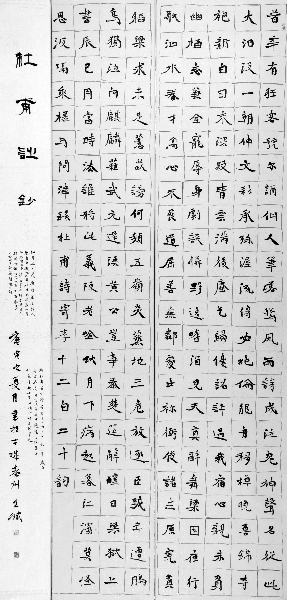 昔年有狂客號爾謫仙人筆落驚風雨詩成泣鬼神聲名從此
大汩沒一朝伸文彩承殊渥流傳必絕倫龍舟移棹晚獸錦奪
袍新白日來深殿青雲滿後塵乞歸優詔許遇我宿心親未負
幽棲志兼全寵辱身劇談憐野逸嗜酒見天真醉舞梁園夜行
歌泗水春才高心不展道屈善無鄰處士禰衡俊諸生原憲貧
稻粱求未足薏苡謗何頻五嶺炎蒸地三危放逐臣幾年遭鵩
鳥獨泣向麒麟蘇武先還漢黃公豈事秦楚筵辭醴日梁獄上
書辰已用當時法誰將此義陳老吟秋月下病起暮江濱莫怪
恩波隔乘槎與問津錄杜甫詩寄李十二白二十韻
杜甫詩鈔
之夏月書於